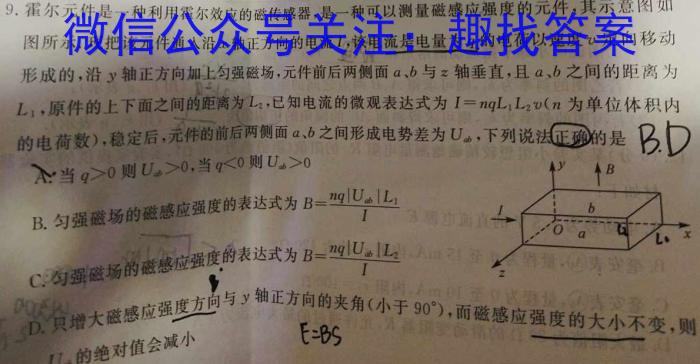 9.霍尔元件是一种利用霍尔效应的磁传感器,是一种可以测量磁感应强度的元件,其示意图如
微信公众号关注：趣找答案
图所示,
移动
形成的,沿y轴正方向加上匀强磁场,元件前后两侧面a、b与z轴垂直,且a、b之间的距离为
L₁,原件的上下面之间的距离为L₂,已知电流的微观表达式为I=nqL₁L₂v(n为单位体积内
的电荷数),稳定后,元件的前后两侧面a、b之间形成电势差为U_ab,下列说法正确的是 B.D
A.当q>0则U_ab>0,当q<0则U_ab>0
B.匀强磁场的磁感应强度的表达式为B=nq|U_ab|L₁/I
C.匀强磁场的磁感应强度的表达式为B=nq|U_ab|L₂/I
D.只增大磁感应强度方向与y轴正方向的夹角(小于90°),而磁感应强度的大小不变,则
U_ab的绝对值会减小
E=BS
y
B
I
b
O
a
x
z